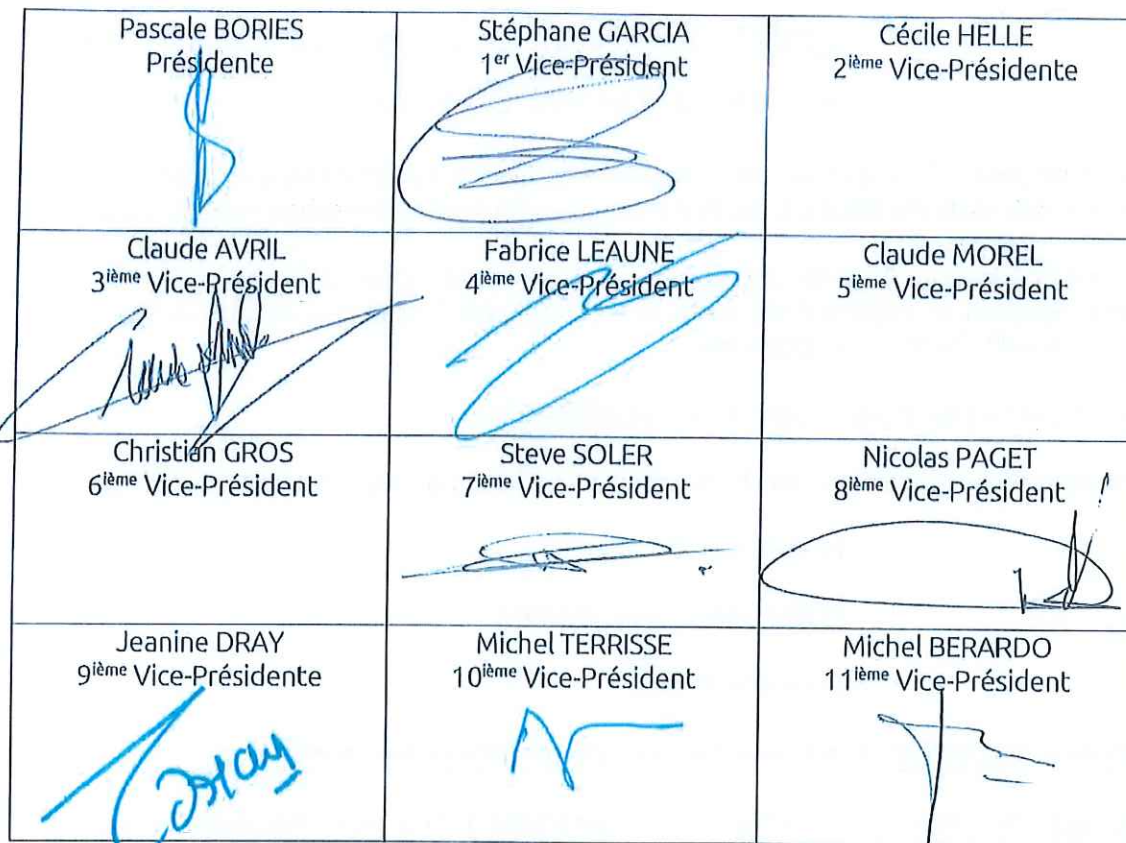 Pascale BORIES
Présidente
Stéphane GARCIA
1er Vice-Président
Cécile HELLE
2ième Vice-Présidente
Claude AVRIL
3ième Vice-Président
Fabrice LEAUNE
4ième Vice-Président
Claude MOREL
5ième Vice-Président
Christian GROS
6ième Vice-Président
Steve SOLER
7ième Vice-Président
Nicolas PAGET
8ième Vice-Président
Jeanine DRAY
9ième Vice-Présidente
Dray
Michel TERRISSE
10ième Vice-Président
Michel BERARDO
11ième Vice-Président